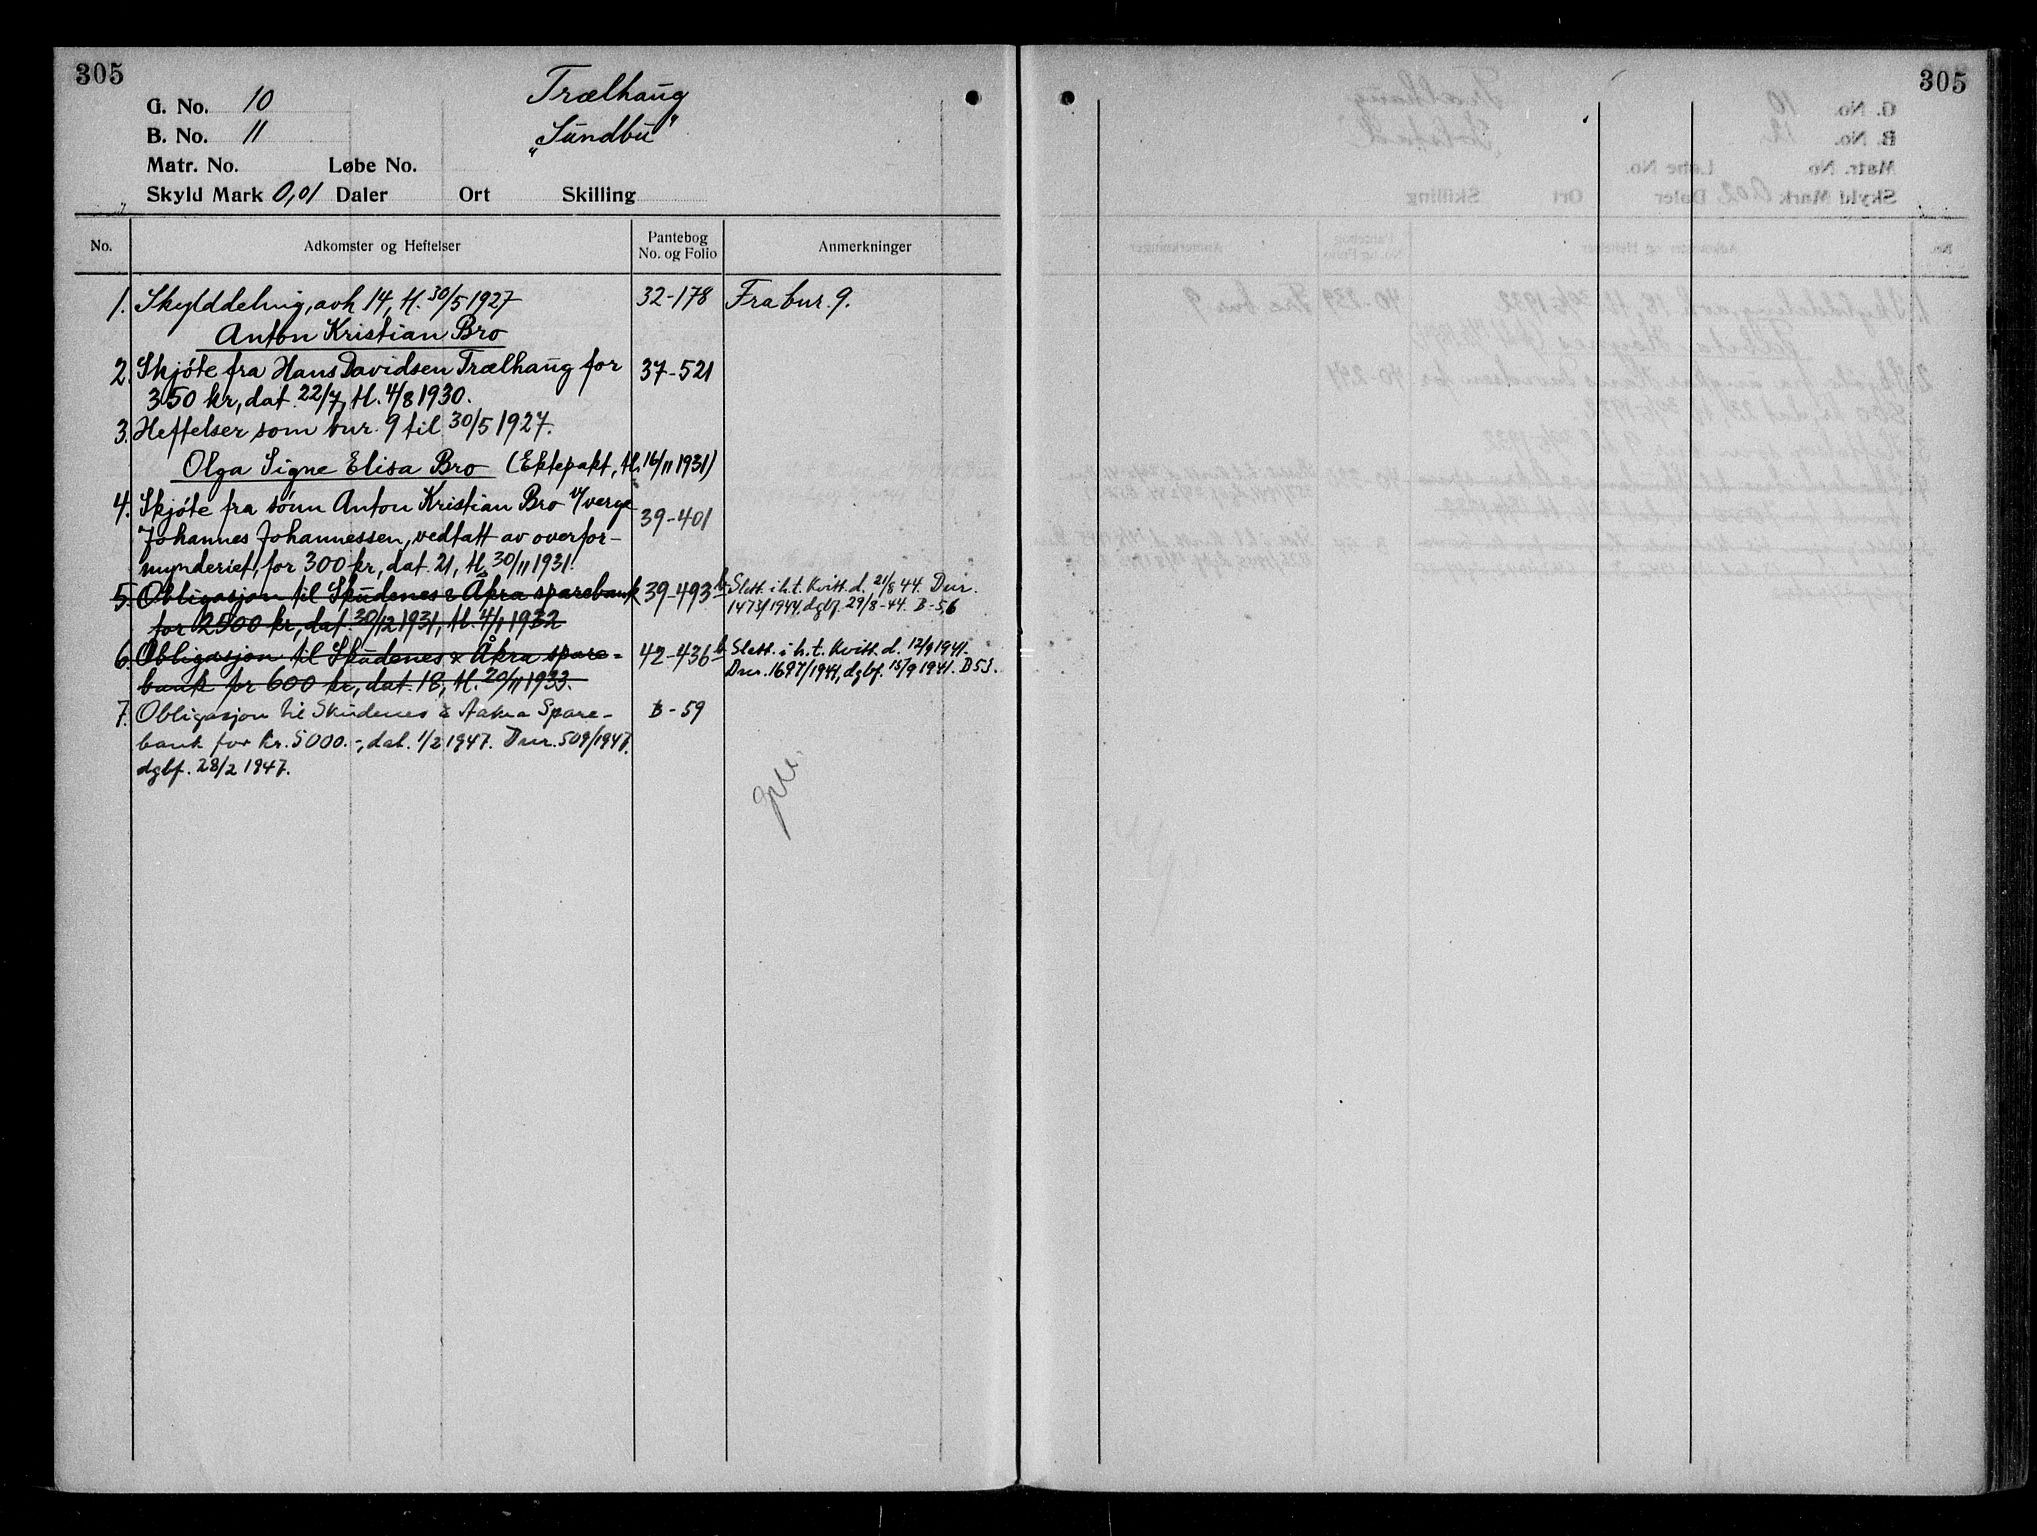 305
G. No. 10
Trælhaug
B. No. 11
„Sundbu"
Matr. No. Løbe No.
Skyld Mark 0,01 Daler Ort Skilling
No. Adkomster og Heftelser Pantebog No. og Folio Anmerkninger
1. Skylddeling, avh 14, tl. 30/5 1927 32-178 Fra bnr. 9.
Anton Kristian Bro
2. Skjøte fra Hans Davidsen Trælhaug for 37-521
350 kr, dat. 22/7, tl. 4/8 1930.
3. Heftelser som bnr. 9 til 30/5 1927.
Olga Signe Elisa Bro (Ektepakt, tl. 16/11 1931)
4. Skjøte fra sønn Anton Kristian Bro v/verge
39-401
Johannes Johannessen, vedtatt av overfor-
mynderiet, for 300 kr, dat. 21, tl. 30/11 1931.
5. Obligasjon til Skudenes & Åkra sparebank 39-493b Slett. i h.t. Kvitt. d. 21/8 44. Dnr.
for 2500 kr, dat. 30/12 1931, tl. 4/1 1932 1473/1944, dgbf. 29/8-44. B-56
6. Obligasjon til Skudenes & Åkra spare- 42-436b Slett. i h.t. Kvitt. d. 12/9 1941.
bank for 600 kr, dat. 18, tl. 20/11 1933. Dnr. 1697/1941, dgbf. 15/9 1941. B 53.
7. Obligasjon til Skudenes & Aakra Spare- B-59
bank for kr. 5000.-, dat. 1/2 1947. Dnr. 509/1947,
dgbf. 28/2 1947.
305